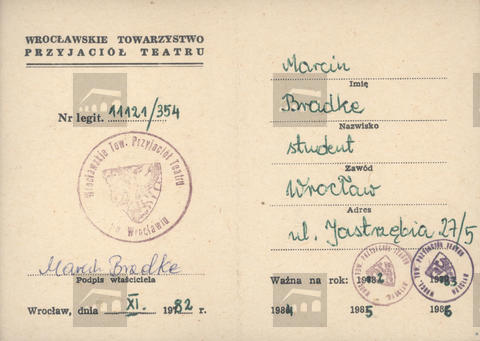 WROCŁAWSKIE TOWARZYSTWO
PRZYJACIÓŁ TEATRU
Nr legit. 11121/354
Wrocławskie Tow. Przyjaciół Teatru
we Wrocławiu
Bradke
Podpis właściciela
Wrocław, dnia XI. 1982 r.
Marcin
Imię
Bradke
Nazwisko
student
Zawód
Wrocław
Adres
ul. Jastrzębia 27/5
Ważna na rok: 1982 1983
1984 1985 1986